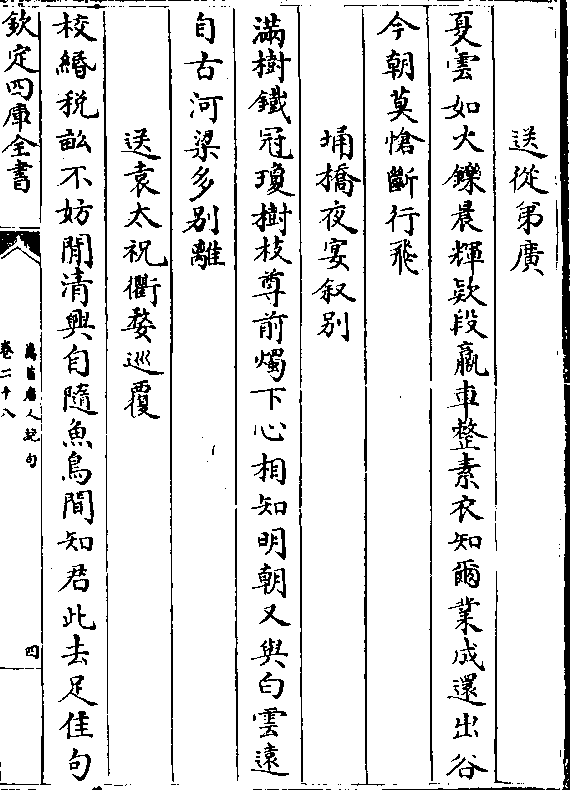 送從弟廣
夏雲如火鑠晨輝欵段羸車整素衣知爾業成還出谷
今朝莫愴斷行飛
埇橋夜宴叙别
滿樹鐵冠瓊樹枝尊前燭下心相知明朝又與白雲遠
自古河梁多别離
送袁太祝衢婺巡覆
校緡稅畝不妨閒清興自隨魚鳥間知君此去足佳句
欽定四庫全書
萬首唐人絶句
卷二十八
四